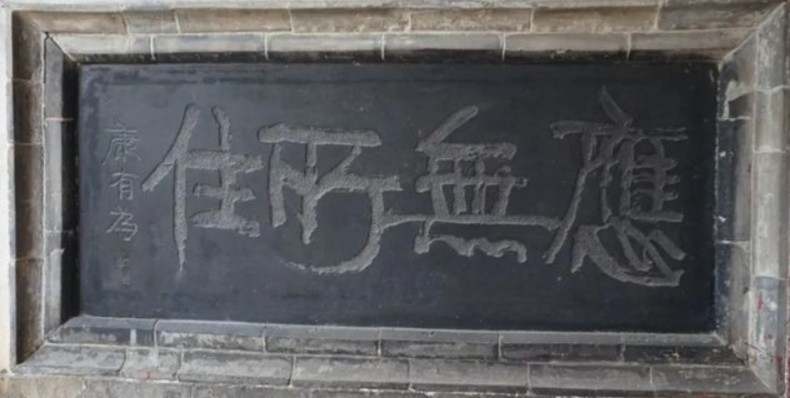 應無所住
康有為